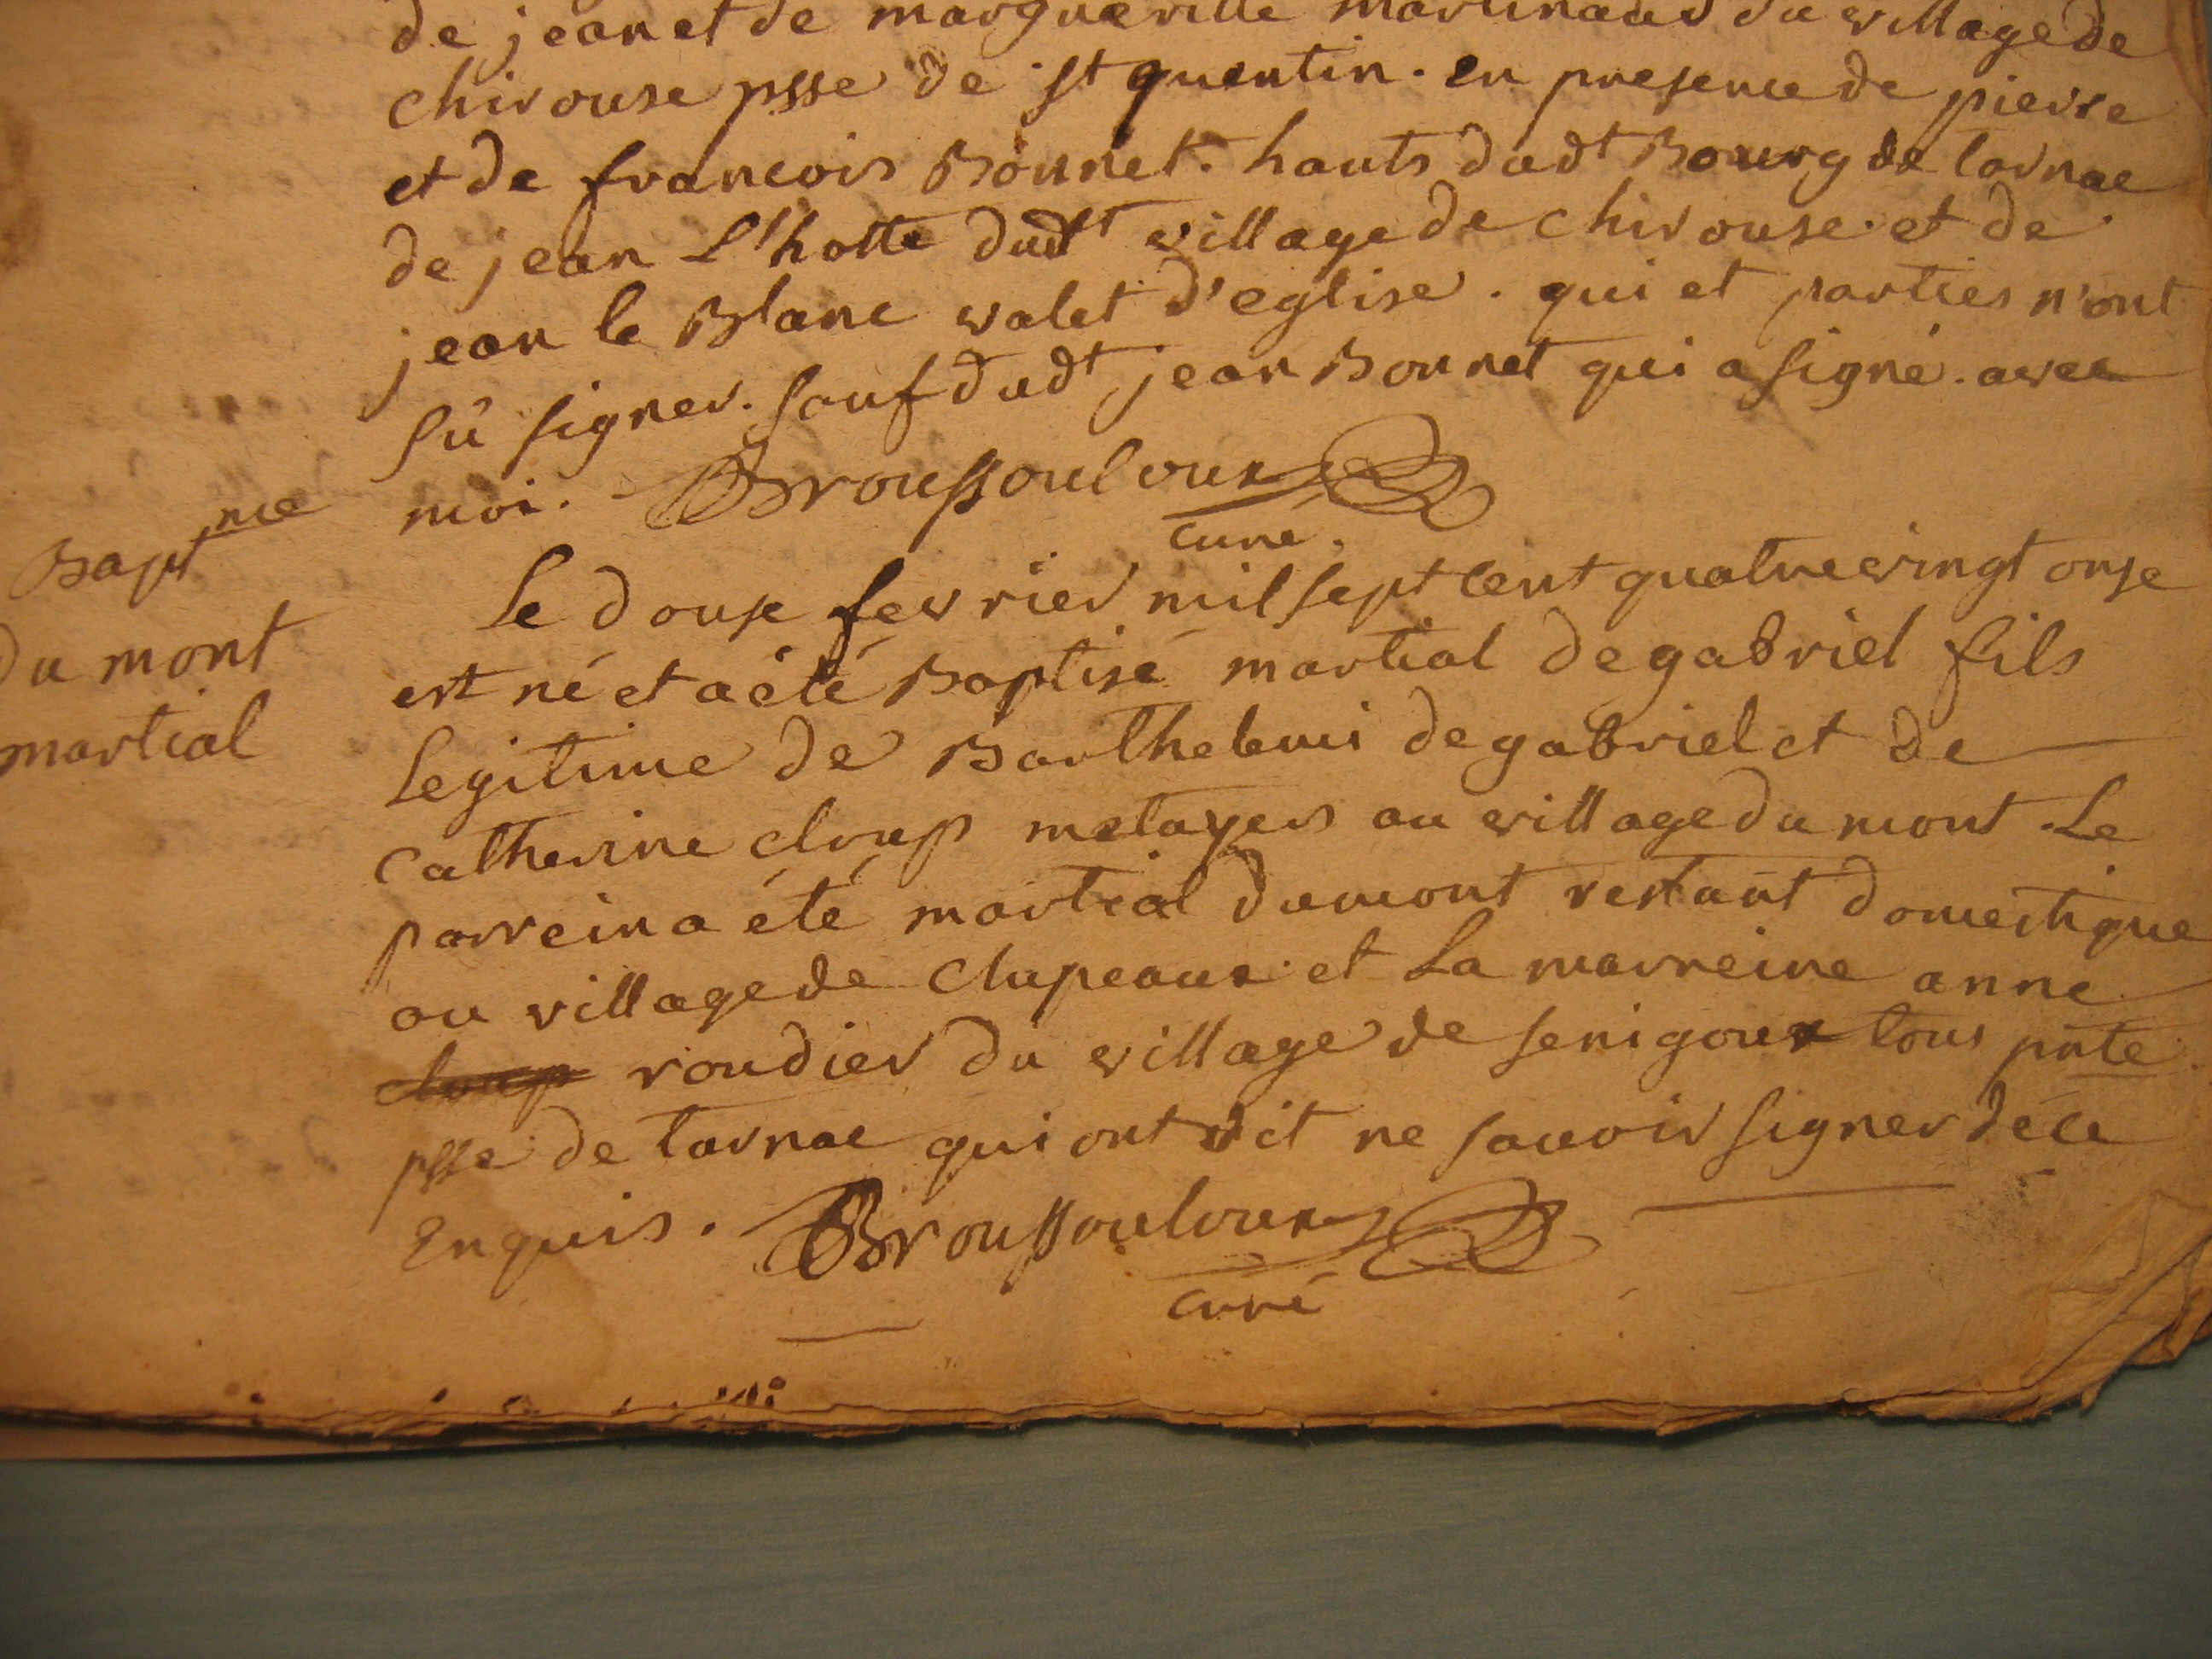 de jean et de margueritte martinaud du village de
chirouse psse de st quentin. en presence de pierre
et de francois Bonnet. hauts dudt Bourg de tarnac
de jean L'hotte dudt village de chirouse. et de
jean le Blanc valet d'eglise. qui et parties n'ont
sû signer. sauf dudt jean Bonnet qui a signé. avec
moi. Broussouloux
curé.
Baptme
du mont
martial
Le douse fevrier mil sept cent quatre vingt onse
est né et a été Baptisé martial de gabriel fils
Legitime de Barthelemi de gabriel et de
Catherine cloup metayers au village du mont. Le
parrein a été martial dumont restant domestique
au village de Clupeaux. et La marreine anne
cloup roudier du village de senigoux tous pnte
psse de tarnac qui ont dit ne sauoir signer de ce
Enquis. Broussouloux
curé